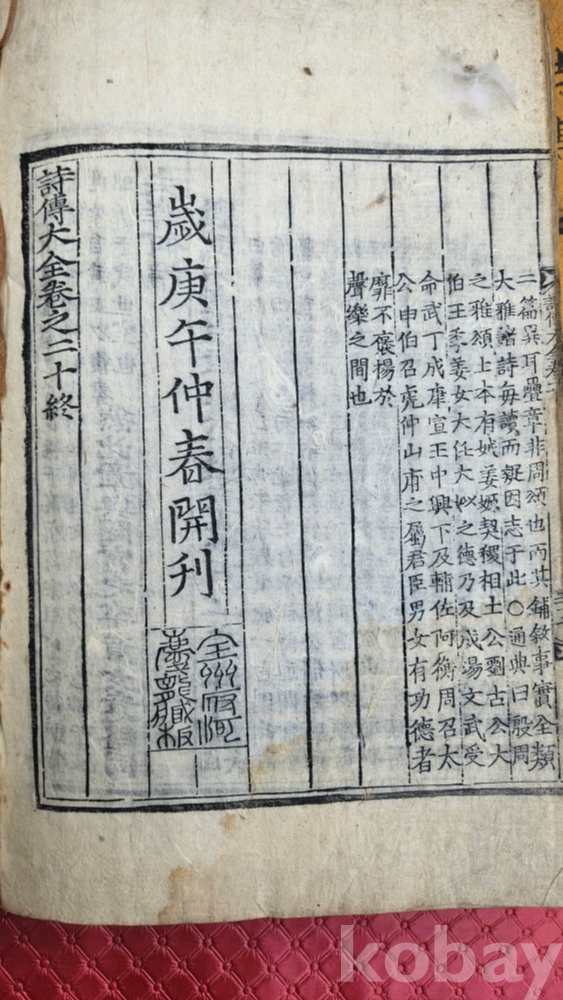 二篇異耳疊章非周頌也而其鋪敘事實全類
大雅諸詩每讀而疑因志于此〇通典曰殷周
之雅頌上本有娀姜嫄契稷相土公劉古公大
伯王季姜女大任大姒之德乃及成湯文武受
命武丁成康宣王中興下及輔佐阿衡周召太
公申伯召虎仲山甫之屬君臣男女有功德者
靡不褒揚於
聲樂之間也
歲庚午仲春開刋
全州府河
慶龍藏板
詩傳大全卷之二十終
kobay